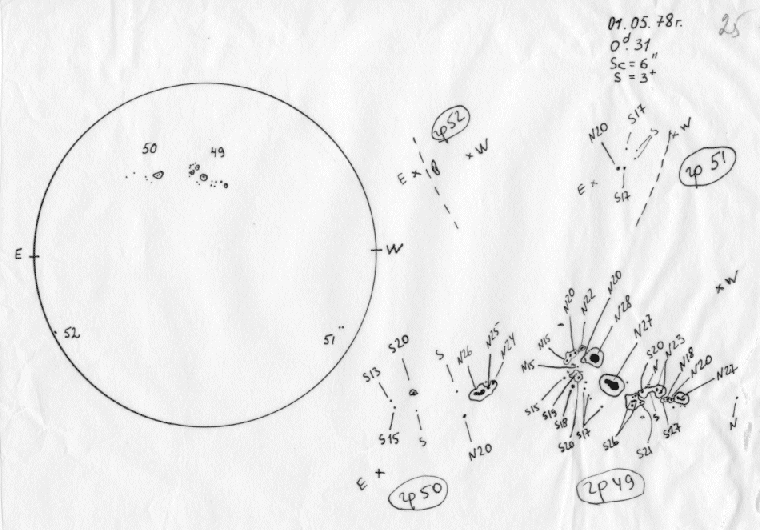 01.05.78г.
25
0ᵈ.31
Sc = 6"
S = 3+
50
49
E
W
52
51
гр52
E × × W
N20
S17
S
× W
гр 51
E ×
S17
× W
S20
S13
S
N26
N25
N24
S15
S
N20
E ×
гр50
N20
N22
N20
N28
N15
N27
N15
S20
N23
N18
N20
N22
S15
S19
S18
S20
S17
S26
S
S21
S27
N
гр49